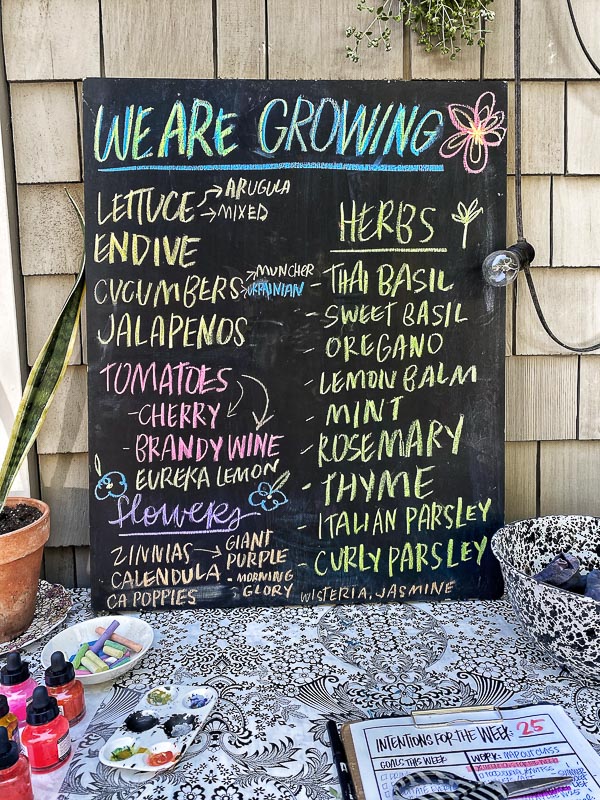 WE ARE GROWING
LETTUCE → ARUGULA
→ MIXED
ENDIVE
CUCUMBERS → MUNCHER
→ UKRAINIAN
JALAPENOS
TOMATOES
- CHERRY
- BRANDYWINE
EUREKA LEMON
flowers
ZINNIAS → GIANT
PURPLE
CALENDULA - MORNING
GLORY
CA POPPIES
HERBS
- THAI BASIL
- SWEET BASIL
- OREGANO
- LEMON BALM
- MINT
- ROSEMARY
- THYME
- ITALIAN PARSLEY
- CURLY PARSLEY
WISTERIA, JASMINE
INTENTIONS FOR THE WEEK: 25
GOALS THIS WEEK
WORK: MAP OUT CLASS